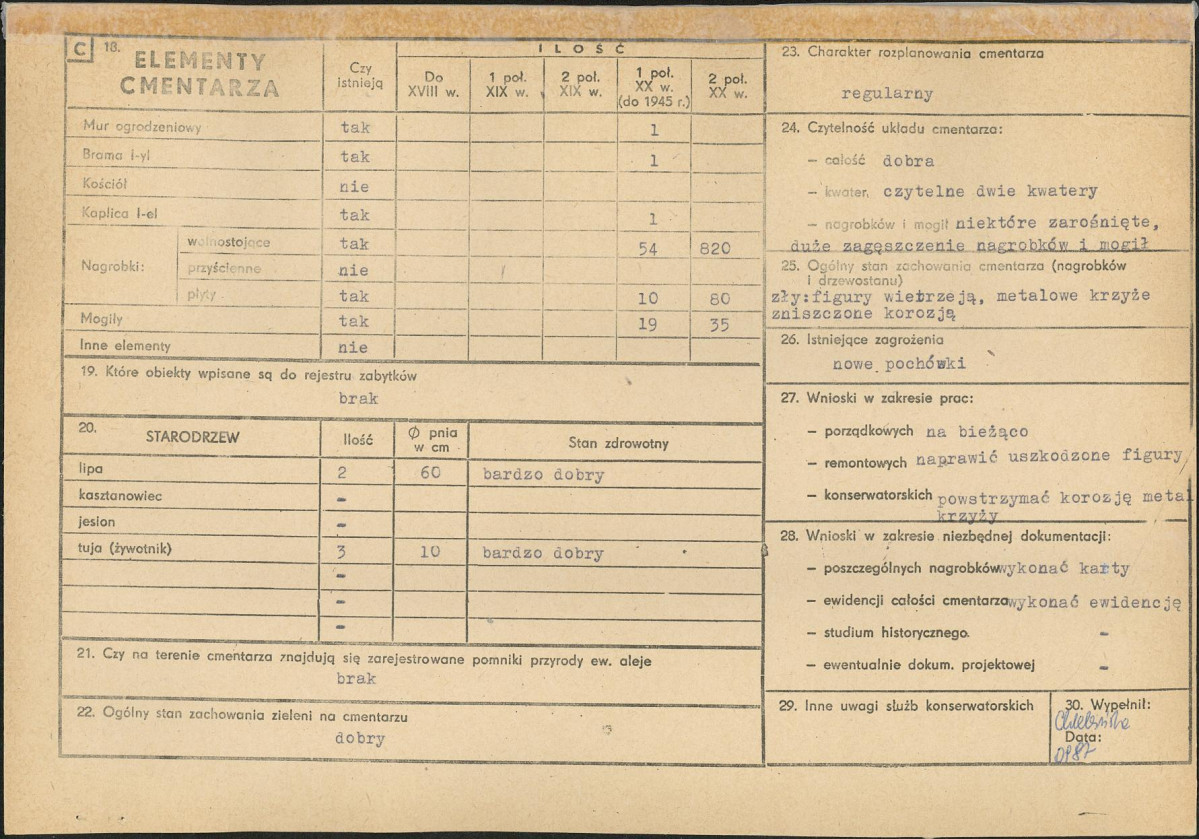 C 18. ELEMENTY CMENTARZA
Czy istnieją
ILOŚĆ
Do XVIII w.
1 poł. XIX w.
2 poł. XIX w.
1 poł. XX w. (do 1945 r.)
2 poł. XX w.
Mur ogrodzeniowy tak 1
Brama i-yl tak 1
Kościół nie
Kaplica l-el tak 1
Nagrobki:
wolnostojące tak 54 820
przyścienne nie
płyty tak 10 80
Mogiły tak 19 35
Inne elementy nie
19. Które obiekty wpisane są do rejestru zabytków
brak
20. STARODRZEW Ilość Ø pnia w cm Stan zdrowotny
lipa 2 60 bardzo dobry
kasztanowiec -
jesion -
tuja (żywotnik) 3 10 bardzo dobry
-
-
-
21. Czy na terenie cmentarza znajdują się zarejestrowane pomniki przyrody ew. aleje
brak
22. Ogólny stan zachowania zieleni na cmentarzu
dobry
23. Charakter rozplanowania cmentarza
regularny
24. Czytelność układu cmentarza:
– całość dobra
– kwater. czytelne dwie kwatery
– nagrobków i mogił niektóre zarośnięte,
duże zagęszczenie nagrobków i mogił
25. Ogólny stan zachowania cmentarza (nagrobków
i drzewostanu)
zły:figury wietrzeją, metalowe krzyże
zniszczone korozją
26. Istniejące zagrożenia
nowe pochówki
27. Wnioski w zakresie prac:
– porządkowych na bieżąco
– remontowych naprawić uszkodzone figury
– konserwatorskich powstrzymać korozję metal
krzyży
28. Wnioski w zakresie niezbędnej dokumentacji:
– poszczególnych nagrobków wykonać karty
– ewidencji całości cmentarza wykonać ewidencję
– studium historycznego. -
– ewentualnie dokum. projektowej -
29. Inne uwagi służb konserwatorskich
30. Wypełnił:
Data:
1987